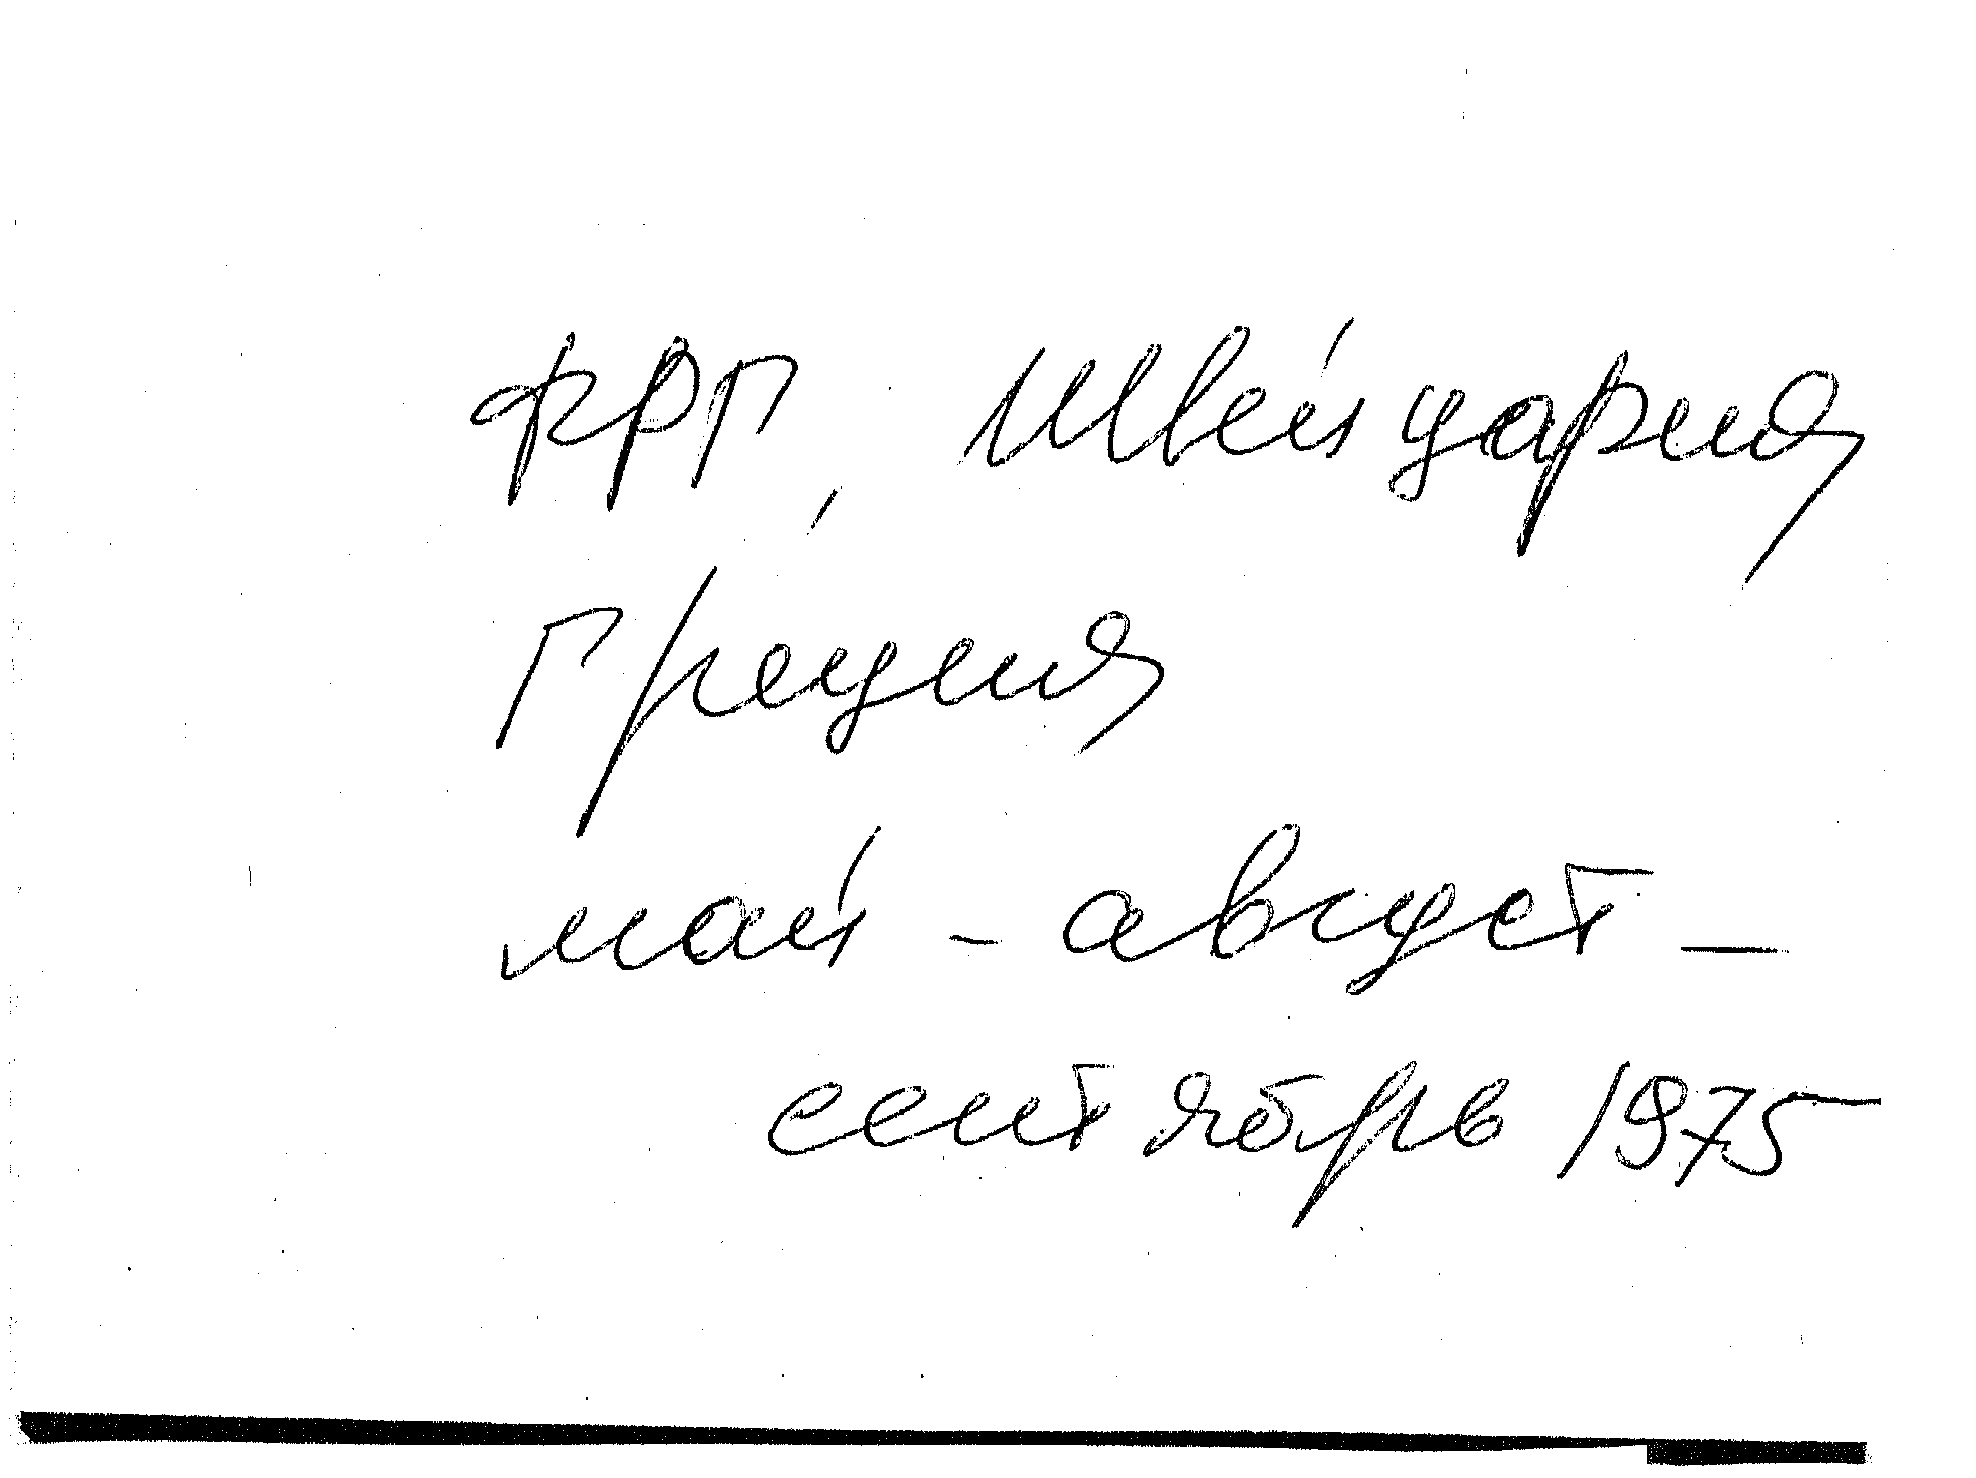 ФРГ, Швейцария
Греция
май - август -
сентябрь 1975